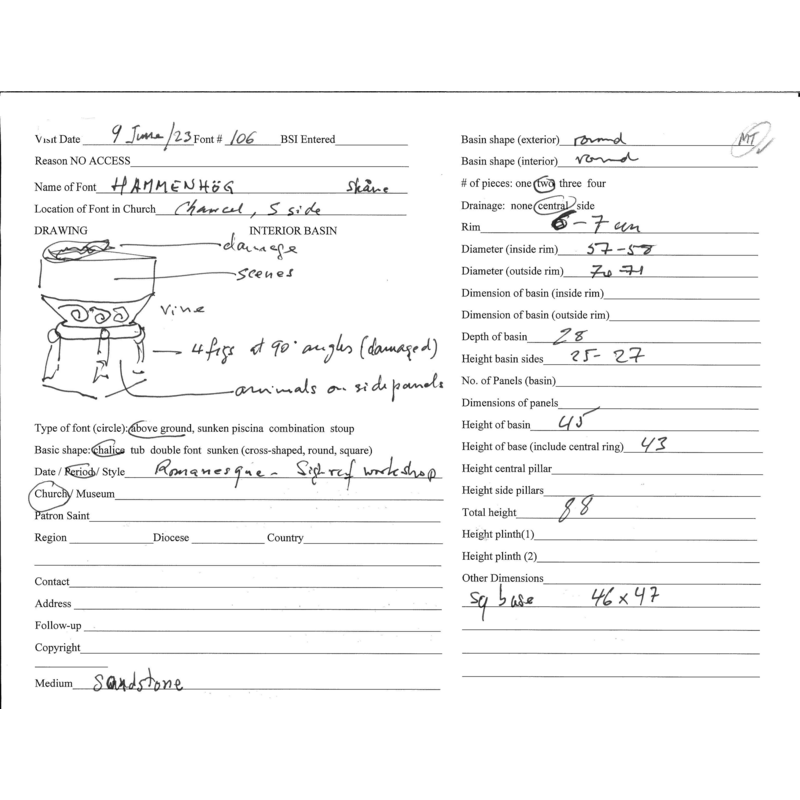 Visit Date 9 June/23 Font # 106 BSI Entered
Reason NO ACCESS
Name of Font HAMMENHÖG Skåne
Location of Font in Church Chancel, S side
DRAWING INTERIOR BASIN
damage
scenes
vine
4 figs at 90° angles (damaged)
animals on side panels
Type of font (circle): above ground, sunken piscina combination stoup
Basic shape: chalice tub double font sunken (cross-shaped, round, square)
Date / Period / Style Romanesque - Sighraf workshop
Church / Museum
Patron Saint
Region Diocese Country
Contact
Address
Follow-up
Copyright
Medium sandstone
Basin shape (exterior) round MT
Basin shape (interior) round
# of pieces: one two three four
Drainage: none central side
Rim 6-7 cm
Diameter (inside rim) 57-58
Diameter (outside rim) 70-71
Dimension of basin (inside rim)
Dimension of basin (outside rim)
Depth of basin 28
Height basin sides 25-27
No. of Panels (basin)
Dimensions of panels
Height of basin 45
Height of base (include central ring) 43
Height central pillar
Height side pillars
Total height 88
Height plinth(1)
Height plinth (2)
Other Dimensions
sq base 46 x 47